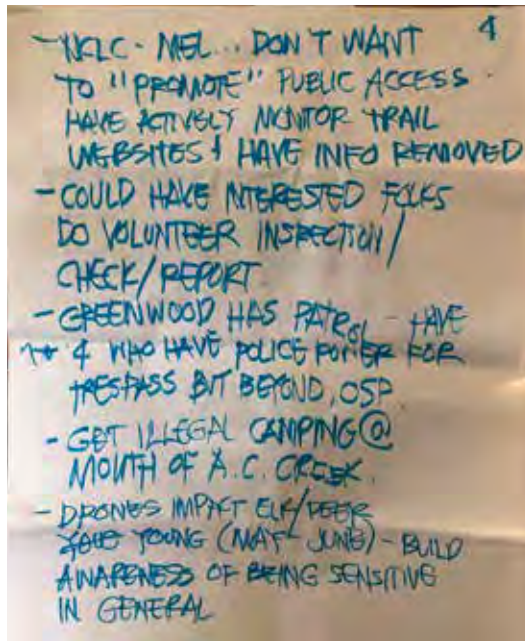 4
- NCLC - MEL... DON'T WANT
TO "PROMOTE" PUBLIC ACCESS.
HAVE ACTIVELY MONITOR TRAIL
WEBSITES & HAVE INFO REMOVED
- COULD HAVE INTERESTED FOLKS
DO VOLUNTEER INSPECTION/
CHECK/REPORT
- GREENWOOD HAS PATROL - HAVE
4 WHO HAVE POLICE POWER FOR
TRESPASS BIT BEYOND, OSP
- GET ILLEGAL CAMPING @
MOUTH OF A.C. CREEK.
- DRONES IMPACT ELK/DEER
YOUNG (MAY - JUNE) - BUILD
AWARENESS OF BEING SENSITIVE
IN GENERAL